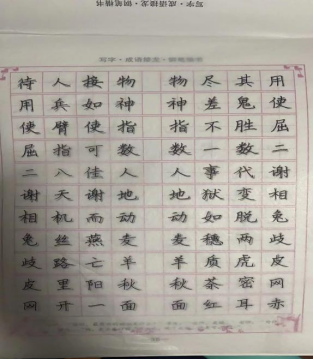 写字·成语接龙·钢笔楷书
待人接物 物尽其用
用兵如神 神差鬼使
使臂使指 指不胜屈
屈指可数 数一数二
二八佳人 人事代谢
谢天谢地 地狱变相
相机而动 动如脱兔
兔丝燕麦 麦穗两歧
歧路亡羊 羊质虎皮
皮里阳秋 秋荼密网
网开一面 面红耳赤